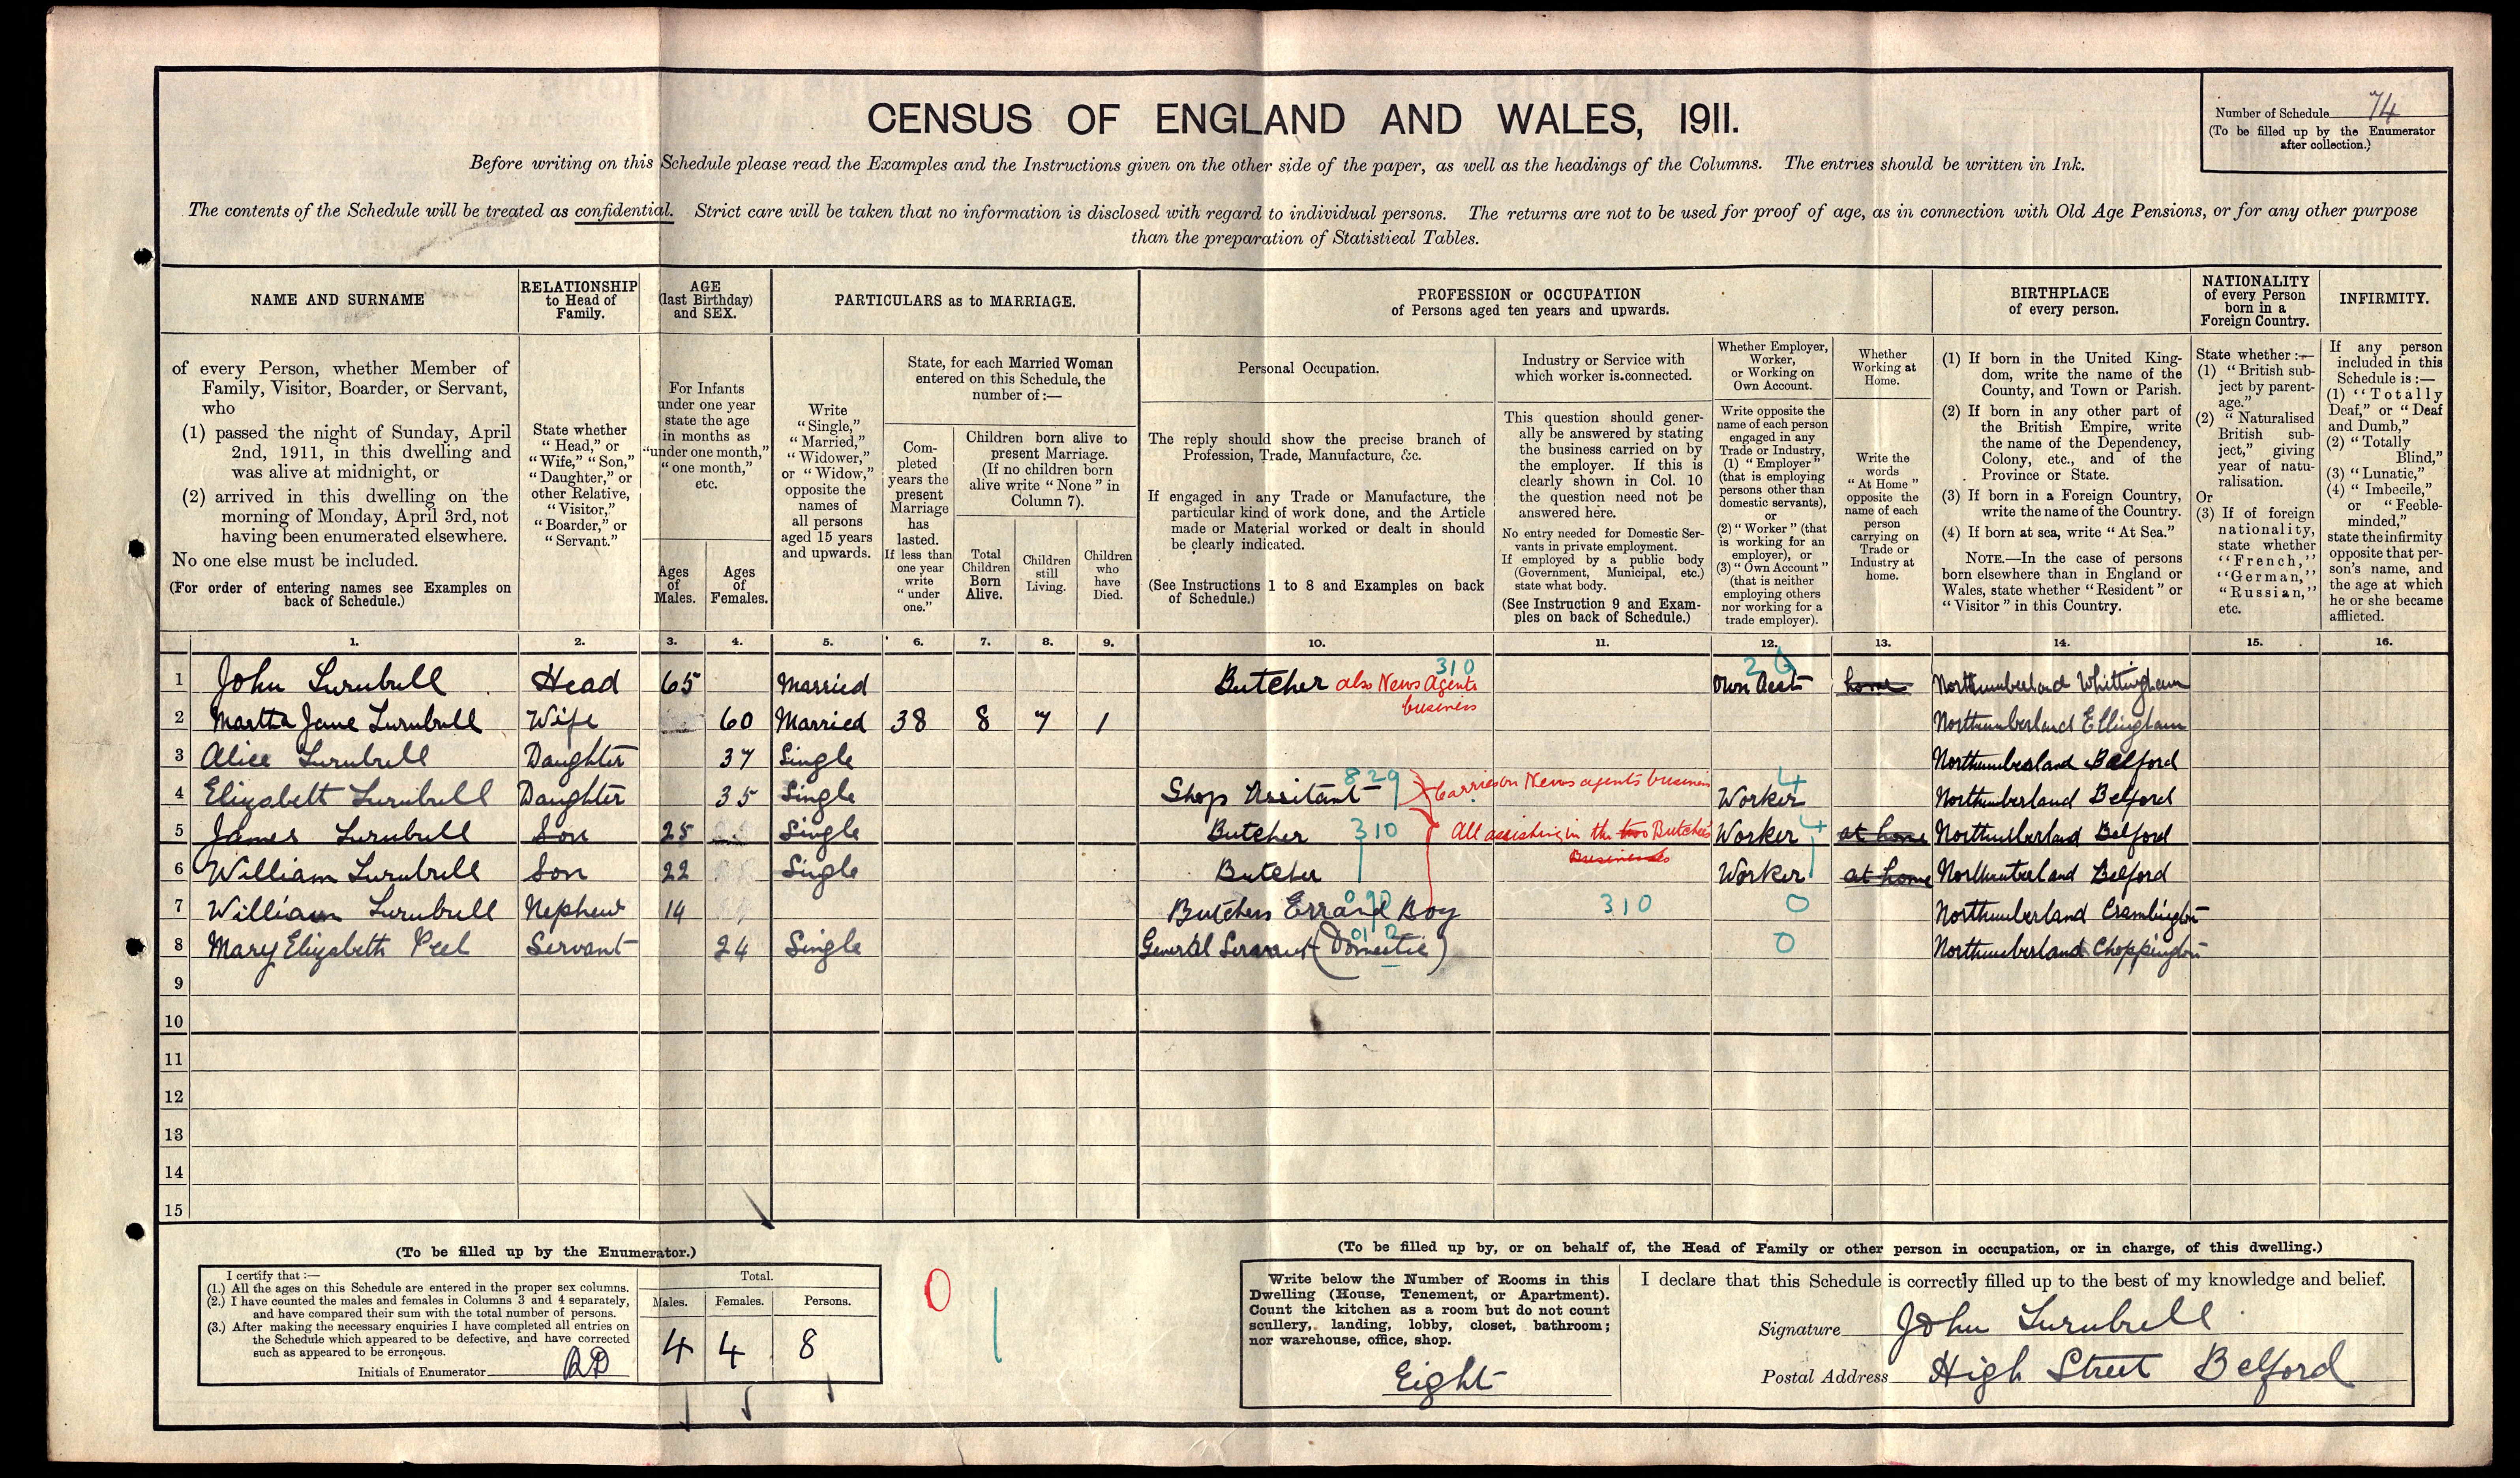 CENSUS OF ENGLAND AND WALES, 1911.
Number of Schedule 74
(To be filled up by the Enumerator
after collection.)
Before writing on this Schedule please read the Examples and the Instructions given on the other side of the paper, as well as the headings of the Columns. The entries should be written in Ink.
The contents of the Schedule will be treated as confidential. Strict care will be taken that no information is disclosed with regard to individual persons. The returns are not to be used for proof of age, as in connection with Old Age Pensions, or for any other purpose
than the preparation of Statistical Tables.
NAME AND SURNAME
of every Person, whether Member of
Family, Visitor, Boarder, or Servant,
who
(1) passed the night of Sunday, April
2nd, 1911, in this dwelling and
was alive at midnight, or
(2) arrived in this dwelling on the
morning of Monday, April 3rd, not
having been enumerated elsewhere.
No one else must be included.
(For order of entering names see Examples on
back of Schedule.)
RELATIONSHIP
to Head of
Family.
State whether
"Head," or
"Wife," "Son,"
"Daughter," or
other Relative,
"Visitor,"
"Boarder," or
"Servant."
AGE
(last Birthday)
and SEX.
For Infants
under one year
state the age
in months as
"under one month,"
"one month,"
etc.
Ages
of
Males.
Ages
of
Females.
PARTICULARS as to MARRIAGE.
Write
"Single,"
"Married,"
"Widower,"
or "Widow,"
opposite the
names of
all persons
aged 15 years
and upwards.
State, for each Married Woman
entered on this Schedule, the
number of:—
Com-
pleted
years the
present
Marriage
has
lasted.
If less than
one year
write
"under
one."
Children born alive to
present Marriage.
(If no children born
alive write "None" in
Column 7).
Total
Children
Born
Alive.
Children
still
Living.
Children
who
have
Died.
PROFESSION or OCCUPATION
of Persons aged ten years and upwards.
Personal Occupation.
The reply should show the precise branch of
Profession, Trade, Manufacture, &c.
If engaged in any Trade or Manufacture, the
particular kind of work done, and the Article
made or Material worked or dealt in should
be clearly indicated.
(See Instructions 1 to 8 and Examples on back
of Schedule.)
Industry or Service with
which worker is connected.
This question should gener-
ally be answered by stating
the business carried on by
the employer. If this is
clearly shown in Col. 10
the question need not be
answered here.
No entry needed for Domestic Ser-
vants in private employment.
If employed by a public body
(Government, Municipal, etc.)
state what body.
(See Instruction 9 and Exam-
ples on back of Schedule.)
Whether Employer,
Worker,
or Working on
Own Account.
Write opposite the
name of each person
engaged in any
Trade or Industry,
(1) "Employer"
(that is employing
persons other than
domestic servants),
or
(2) "Worker" (that
is working for an
employer), or
(3) "Own Account"
(that is neither
employing others
nor working for a
trade employer).
Whether
Working at
Home.
Write the
words
"At Home"
opposite the
name of each
person
carrying on
Trade or
Industry at
home.
BIRTHPLACE
of every person.
(1) If born in the United King-
dom, write the name of the
County, and Town or Parish.
(2) If born in any other part of
the British Empire, write
the name of the Dependency,
Colony, etc., and of the
Province or State.
(3) If born in a Foreign Country,
write the name of the Country.
(4) If born at sea, write "At Sea."
NOTE.—In the case of persons
born elsewhere than in England or
Wales, state whether "Resident" or
"Visitor" in this Country.
NATIONALITY
of every Person
born in a
Foreign Country.
State whether:—
(1) "British sub-
ject by parent-
age."
(2) "Naturalised
British sub-
ject," giving
year of natu-
ralisation.
Or
(3) If of foreign
nationality,
state whether
"French,"
"German,"
"Russian,"
etc.
INFIRMITY.
If any person
included in this
Schedule is:—
(1) "Totally
Deaf," or "Deaf
and Dumb,"
(2) "Totally
Blind,"
(3) "Lunatic,"
(4) "Imbecile,"
or "Feeble-
minded,"
state the infirmity
opposite that per-
son's name, and
the age at which
he or she became
afflicted.
1. 2. 3. 4. 5. 6. 7. 8. 9. 10. 11. 12. 13. 14. 15. 16.
1 John Turnbull Head 65 Married Butcher also News Agents business 310 Own Acct home Northumberland Whittingham
2 Martha Jane Turnbull Wife 60 Married 38 8 7 1 Northumberland Ellingham
3 Alice Turnbull Daughter 37 Single Northumberland Belford
4 Elizabett Turnbull Daughter 35 Single Shop Assitant 829 Carries on News agents business Worker 4 Northumberland Belford
5 James Turnbull Son 25 Single Butcher 310 All assisting in the two Butchers Businesses Worker 4 at home Northumberland Belford
6 William Turnbull Son 22 Single Butcher Worker at home Northumberland Belford
7 William Turnbull Nephew 14 Butchers Errand Boy 310 0 Northumberland Cramlington
8 Mary Elizabeth Peel Servant 24 Single General Servant (Domestic) 0 Northumberland Choppington
9
10
11
12
13
14
15
(To be filled up by the Enumerator.)
I certify that:—
(1.) All the ages on this Schedule are entered in the proper sex columns.
(2.) I have counted the males and females in Columns 3 and 4 separately,
and have compared their sum with the total number of persons.
(3.) After making the necessary enquiries I have completed all entries on
the Schedule which appeared to be defective, and have corrected
such as appeared to be erroneous.
Initials of Enumerator
Total.
Males. Females. Persons.
4 4 8
0
(To be filled up by, or on behalf of, the Head of Family or other person in occupation, or in charge, of this dwelling.)
Write below the Number of Rooms in this
Dwelling (House, Tenement, or Apartment).
Count the kitchen as a room but do not count
scullery, landing, lobby, closet, bathroom;
nor warehouse, office, shop.
Eight
I declare that this Schedule is correctly filled up to the best of my knowledge and belief.
Signature John Turnbull
Postal Address High Street Belford